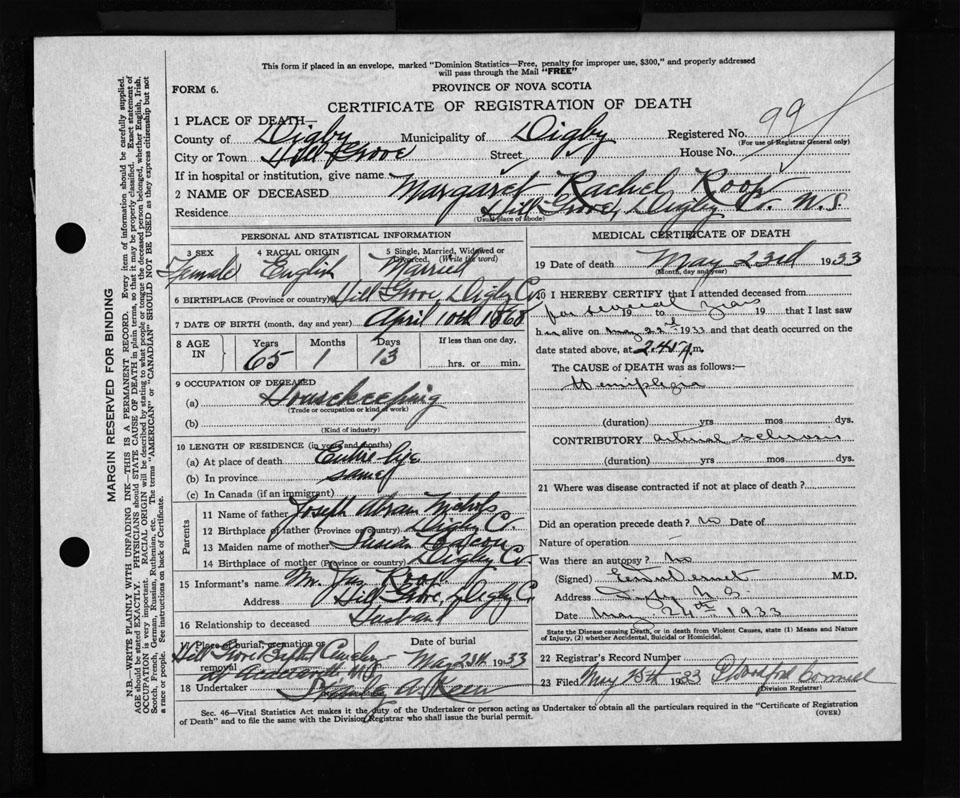 This form if placed in an envelope, marked "Dominion Statistics—Free, penalty for improper use, $300," and properly addressed
will pass through the Mail "FREE"
FORM 6.
PROVINCE OF NOVA SCOTIA
CERTIFICATE OF REGISTRATION OF DEATH
1 PLACE OF DEATH—
County of Digby Municipality of Digby Registered No. 99
(For use of Registrar General only)
City or Town Hill Grove Street House No.
If in hospital or institution, give name
2 NAME OF DECEASED Margaret Rachel Roop
Residence Hill Grove, Digby Co. N.S.
(Usual place of abode)
PERSONAL AND STATISTICAL INFORMATION
3 SEX 4 RACIAL ORIGIN 5 Single, Married, Widowed or Divorced. (Write the word)
Female English Married
6 BIRTHPLACE (Province or country) Hill Grove, Digby Co.
7 DATE OF BIRTH (month, day and year) April 10th 1868
8 AGE IN Years Months Days If less than one day,
65 1 13 hrs. or min.
9 OCCUPATION OF DECEASED
(a) Housekeeping
(Trade or occupation or kind of work)
(b)
(Kind of industry)
10 LENGTH OF RESIDENCE (in years and months)
(a) At place of death Entire life
(b) In province same
(c) In Canada (if an immigrant)
Parents
11 Name of father Joseph Abram Nichols
12 Birthplace of father (Province or country) Digby Co.
13 Maiden name of mother Susan
14 Birthplace of mother (Province or country) Digby Co.
15 Informant's name Mr. Jas. Roop
Address Hill Grove, Digby Co.
16 Relationship to deceased Husband
17 Place of burial, cremation or removal Date of burial
Hill Grove Baptist Cemetery May 25th 1933
at N.S.
18 Undertaker A. Keen
MEDICAL CERTIFICATE OF DEATH
19 Date of death May 23rd 1933
(Month, day and year)
20 I HEREBY CERTIFY that I attended deceased from
for several years 19 to 19 that I last saw
her alive on May 22nd 1933 and that death occurred on
date stated above, at 2.45 A.m.
The CAUSE of DEATH was as follows:—
Hemiplegia
(duration) yrs mos dys.
CONTRIBUTORY arterial sclerosis
(duration) yrs mos dys.
21 Where was disease contracted if not at place of death?
Did an operation precede death? no Date of
Nature of operation —
Was there an autopsy? no
(Signed) M.D.
Address Digby N.S.
Date May 24th 1933
State the Disease causing Death, or in death from Violent Causes, state (1) Means and Nature
of Injury, (2) whether Accidental, Suicidal or Homicidal.
22 Registrar's Record Number
23 Filed May 25th 1933
(Division Registrar)
Sec. 46—Vital Statistics Act makes it the duty of the Undertaker or person acting as Undertaker to obtain all the particulars required in the "Certificate of Registration
of Death" and to file the same with the Division Registrar who shall issue the burial permit.
(OVER)
MARGIN RESERVED FOR BINDING
N.B.—WRITE PLAINLY WITH UNFADING INK—THIS IS A PERMANENT RECORD. Every item of information should be carefully supplied.
AGE should be stated EXACTLY. PHYSICIANS should STATE CAUSE OF DEATH in plain terms, so that it may be properly classified. Exact statement of
OCCUPATION is very important. RACIAL ORIGIN will be described by stating to what people or tongue the deceased person belonged, whether English, Irish,
Scotch, French, German, Russian, Ruthenian, etc. The terms "AMERICAN" or "CANADIAN" SHOULD NOT BE USED as they express citizenship but not
a race or people. See instructions on back of Certificate.